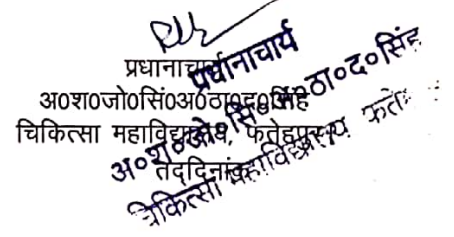 प्रधानाचार्य
अ०श०जो०सिं०अ०ठा०द०सिंह
चिकित्सा महाविद्यालय, फतेहपुर।
तद्दिनांक
प्रधानाचार्य
अ०श०जो०सि०अ०ठा०द०सिंह
चिकित्सा महाविद्यालय फतेह